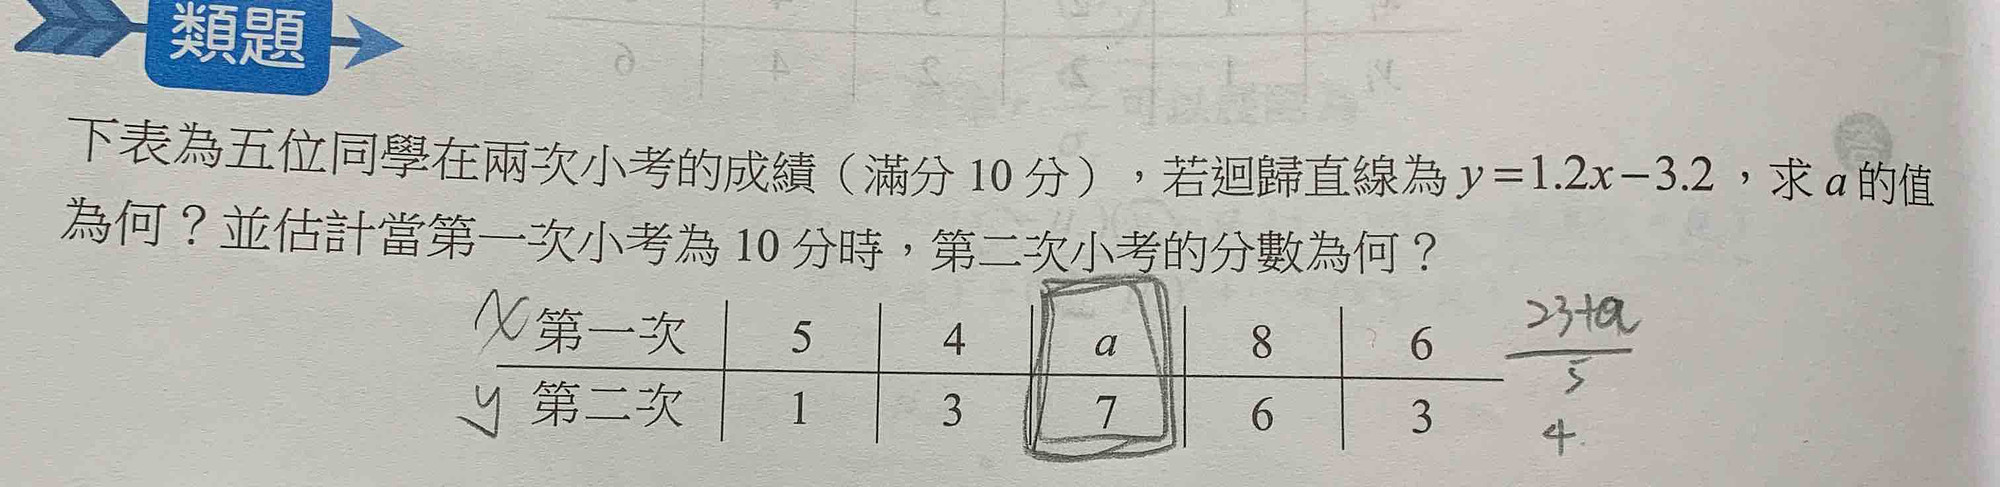 類題
下表為五位同學在兩次小考的成績（滿分 10 分），若迴歸直線為 y=1.2x−3.2，求 a 的值
為何？並估計當第一次小考為 10 分時，第二次小考的分數為何？
x 第一次 5 4 a 8 6 23+a
5
y 第二次 1 3 7 6 3 4.